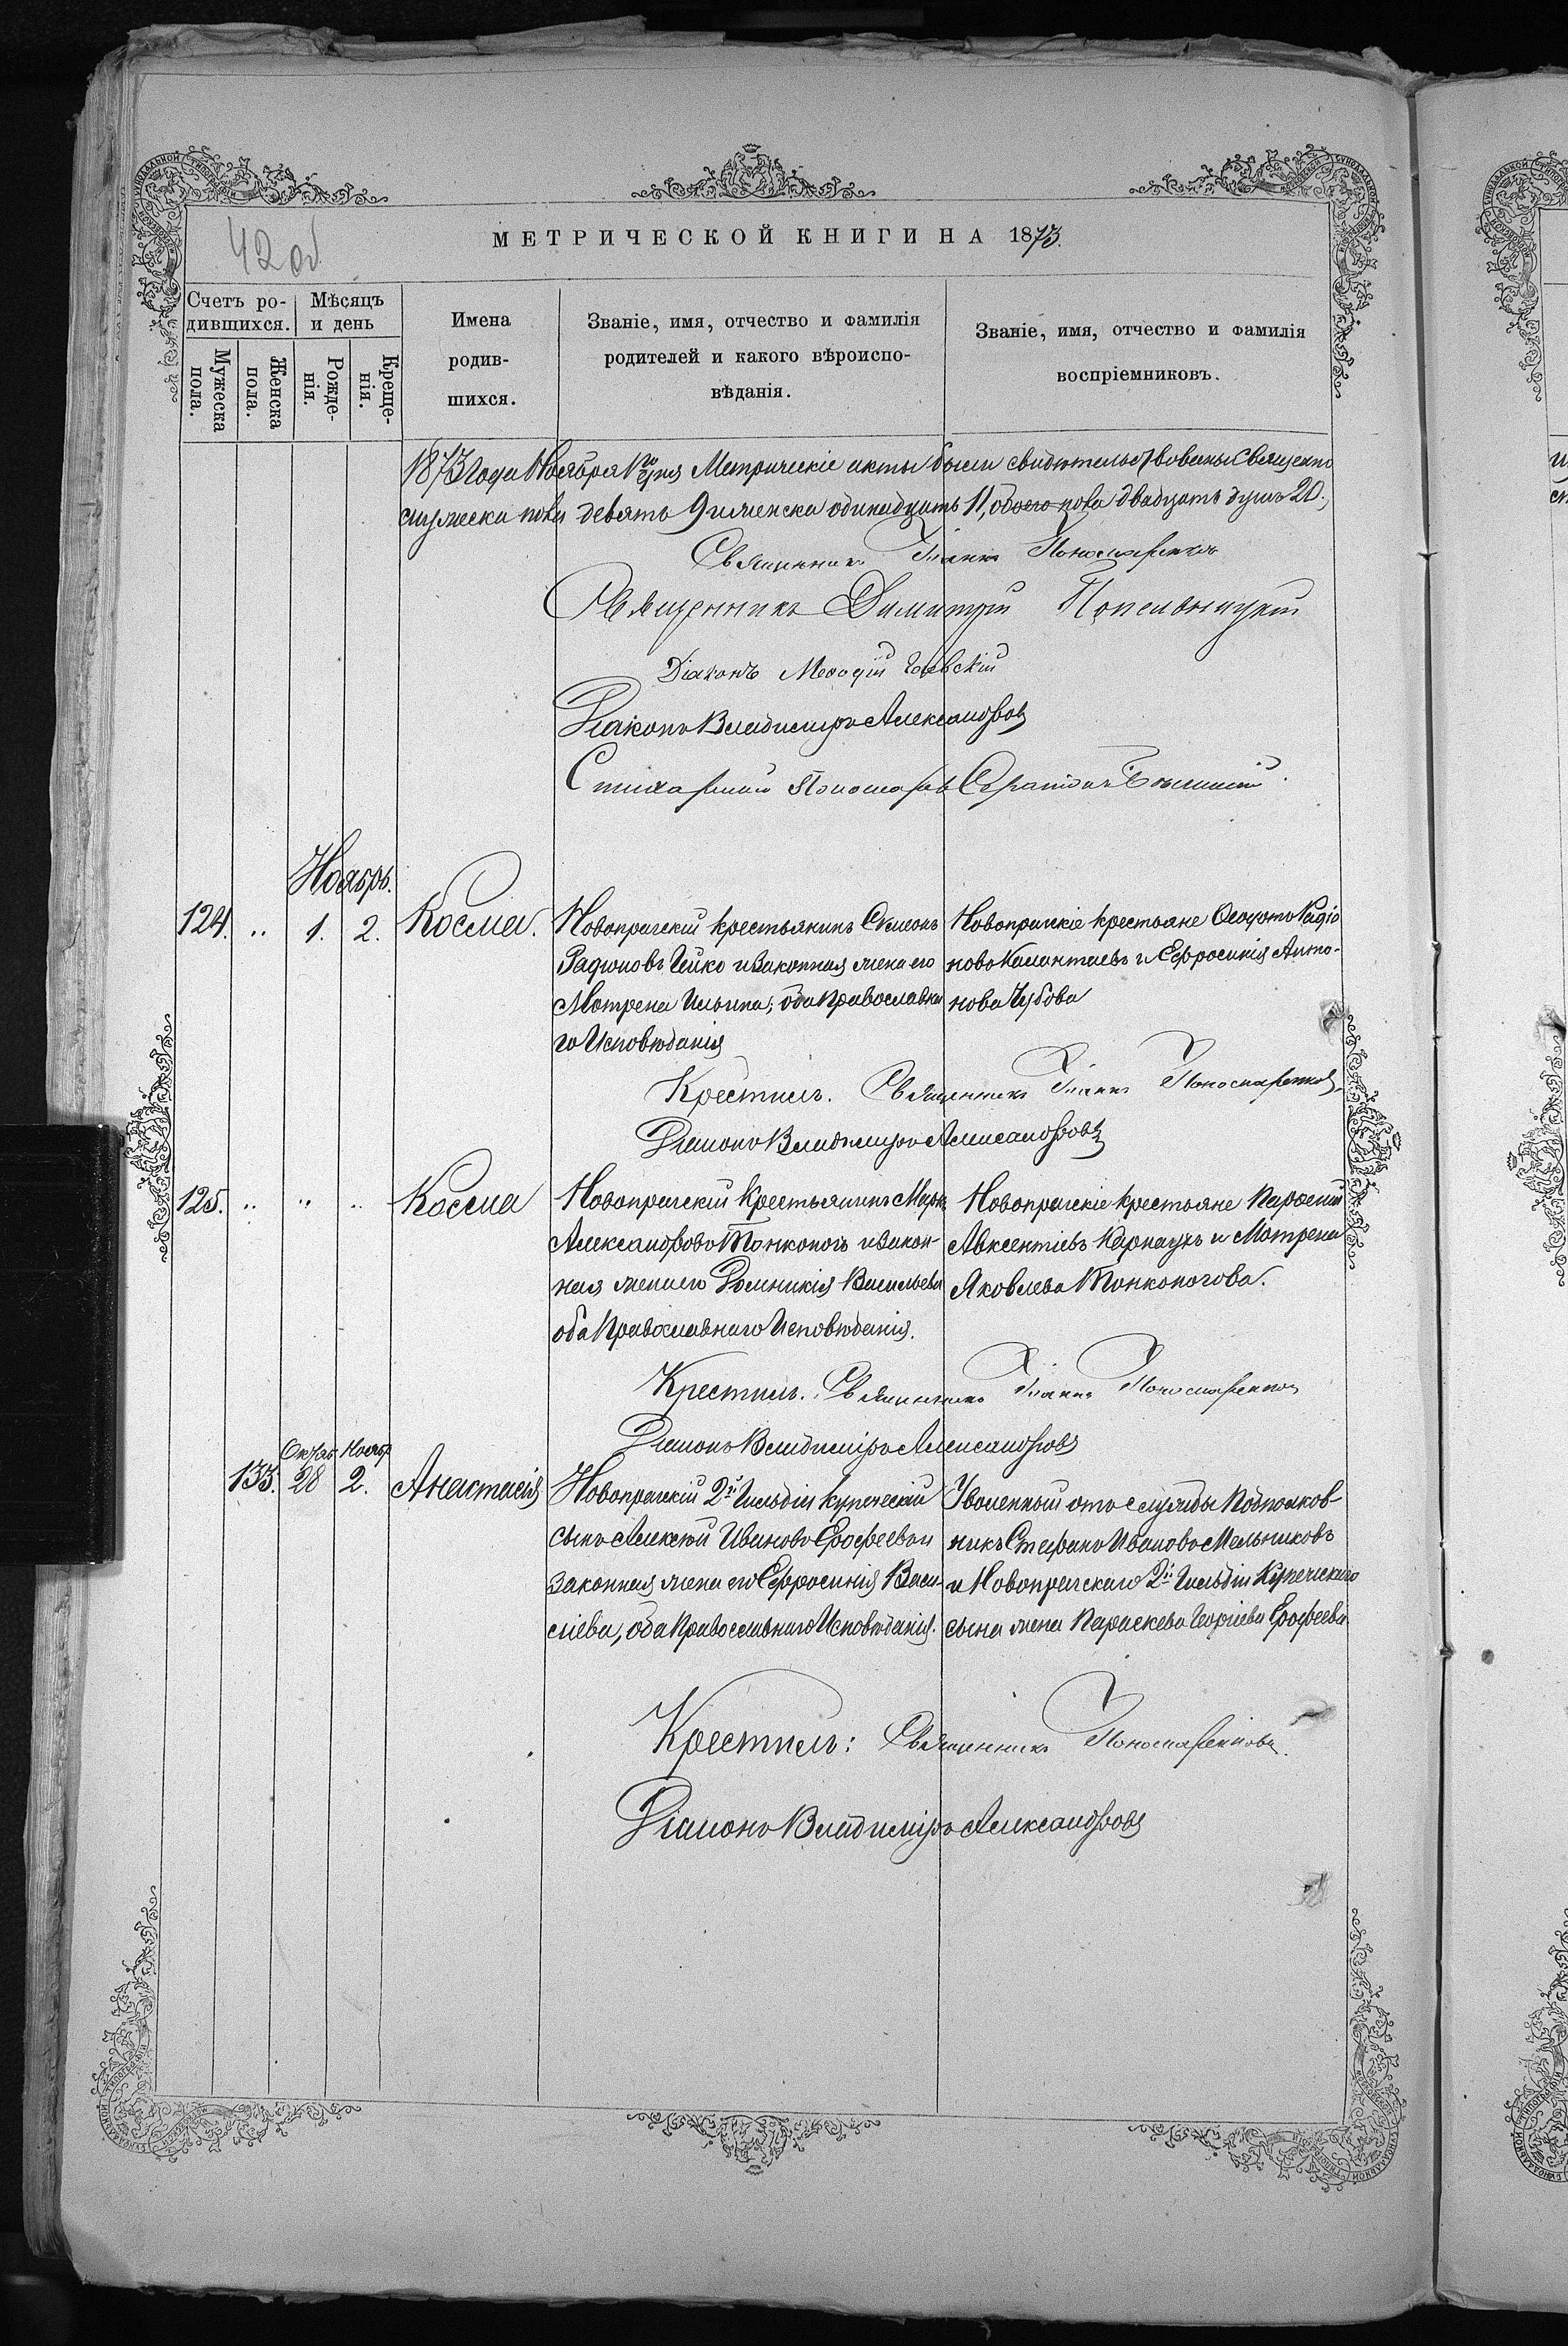 42 об
МЕТРИЧЕСКОЙ КНИГИ НА 1873.
Счетъ ро-
дившихся.
Мѣсяцъ
и день
Мужеска
пола.
Женска
пола.
Рожде-
нія.
Креще-
нія.
Имена
родив-
шихся.
Званіе, имя, отчество и фамилія
родителей и какого вѣроиспо-
вѣданія.
Званіе, имя, отчество и фамилія
воспріемниковъ.
1873 года Ноября Метрическіе акты были свидѣтельствованы Священно
мужеска пола девять 9 и женска одинадцать 11, обоего пола двадцать душъ 20.
Священникъ Іоаннъ Пономаренковъ
Священникъ Димитрій
Діаконъ Меѳодій
Діаконъ Владиміръ Александровъ
Стихарный Пономарь
Ноябрь.
124. „ 1. 2. Косма.
Новопрагскій крестьянинъ Сѵмеонъ
Радіоновъ Чейко и законная жена его
Мотрена Ильина; оба Православна
го Исповѣданія
Новопрагскіе крестьяне Ѳеодотъ Радіо
новъ Калантаевъ и Ефросинія Анто-
нова Чубова
Крестилъ. Священникъ Іоаннъ Пономаренковъ
Діаконъ Владиміръ Александровъ
125. „ „ „ Косма
Новопрагскій Крестьянинъ Маркъ
Александровъ Тонконогъ и закон-
ная жена его Домникія Васильева
оба Православнаго Исповѣданія.
Новопрагскіе крестьяне Парѳеній
Авксентіевъ Карнаухъ и Мотрена
Яковлева Тонконогова.
Крестилъ. Священникъ Іоаннъ Пономаренковъ
Діаконъ Владиміръ Александровъ
Октяб Ноябр
133. 28 2. Анастасія
Новопрагскій 2й Гильдіи купеческій
сынъ Алексѣй Ивановъ Ерофеевъ и
законная жена его Ефросинія Васи-
лieва, оба Православнаго Исповѣданія.
Уволенный отъ службы Подполков-
никъ Стефанъ Ивановъ Мельниковъ
и Новопрагскаго 2й Гильдіи Купеческаго
сына жена Параскева Георгіева Ерофеева
Крестилъ: Священникъ Пономаренковъ
Діаконъ Владиміръ Александровъ